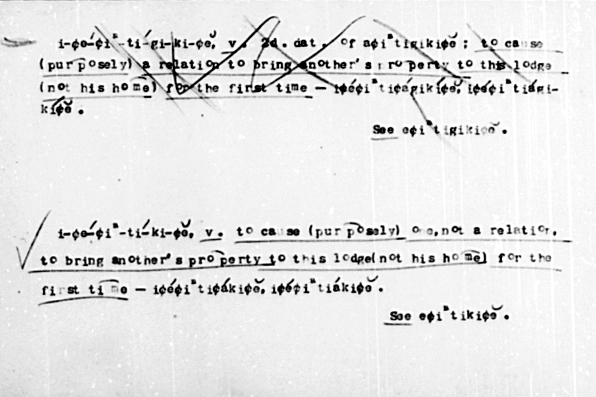 i-ȼe-ȼiⁿ-ti-́gi-ki-ȼĕ, v. 2d. dat. of aȼiⁿtigikiȼĕ; to cause
(purposely) a relation to bring another's property to this lodge
(not his home) for the first time — iȼéȼiⁿtiȼágikiȼĕ, iȼéȼiⁿtiági-
kiȼĕ.
See eȼiⁿtigikiȼĕ.
i-ȼe-́ȼiⁿ-ti-́ki-ȼĕ, v. to cause (purposely) one, not a relation,
to bring another's property to this lodge(not his home) for the
first time — iȼéȼiⁿtiȼákiȼĕ, iȼéȼiⁿtiákiȼĕ.
See eȼiⁿtikiȼĕ.